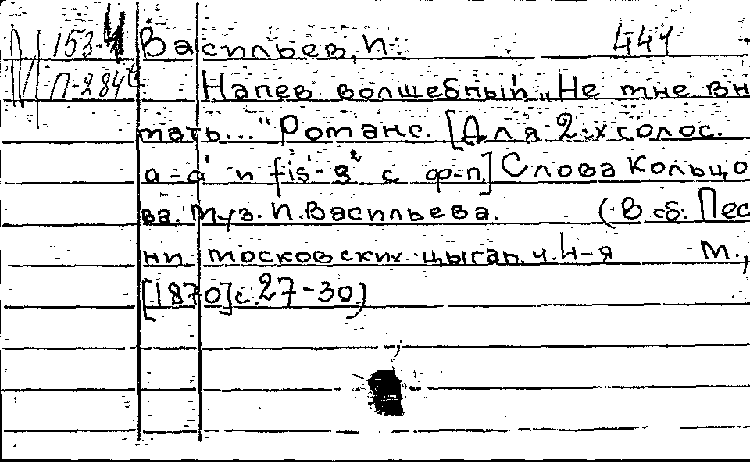 М 153-4 Васильев, П. 441
П-284 Напев волшебный „Не мне вн
мать..." Романс. [Для 2-х голос.
а-а' и fis-g² с ф-п.] Слова Кольцо
ва. Муз. П. Васильева. (В сб. Пес
ни московских цыган. ч. 4-я М.,
[1870] с. 27-30)